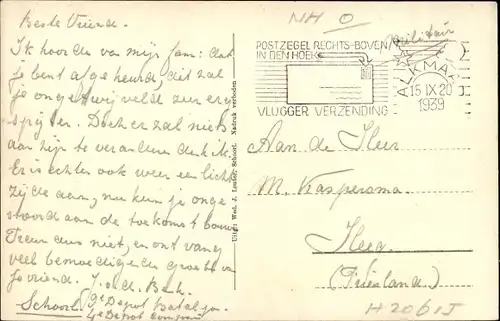 Beste Vriend.
Ik hoorde van mijn fam: dat
je bent afgekeurd, dit zal
je ongetwijfeld zeer erg
spijten. Doch er zal niets
aan zijn te veranderen denk ik.
Er is echter ook weer een licht
zijde aan, nu kun je onge
stoord aan de toekomst bouwen
Treur dus niet, en ontvang
veel bemoedigende groeten van
je vriend. J. v. d. Bech.
Schoorl. 9e Depot Bataljon
4e Depot Compani
Uitg: Wed. J. Louter, Schoorl. Nadruk verboden
NH O
Militair
POSTZEGEL RECHTS-BOVEN
IN DEN HOEK
VLUGGER VERZENDING
ALKMAAR
15 IX 20
1939
Aan de Heer
M. Kaspersma.
Heeg.
(Friesland)
H 206 J